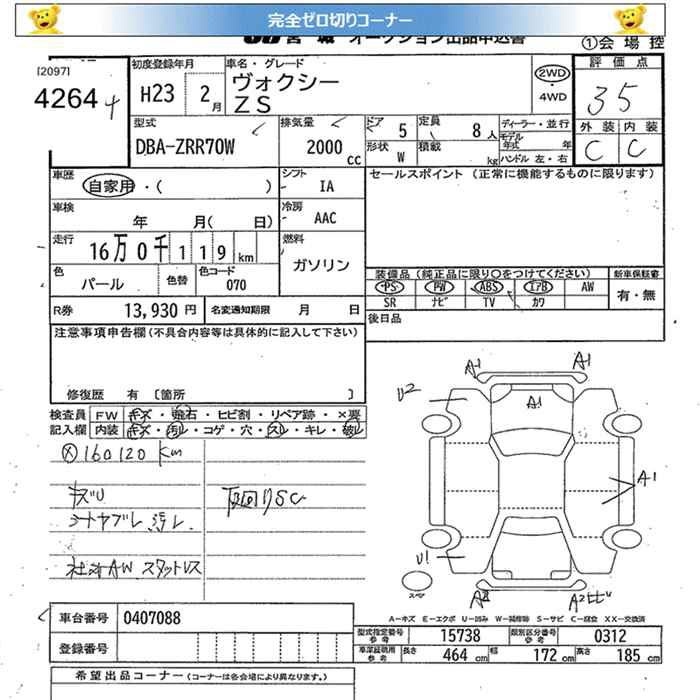 完全ゼロ切りコーナー
JU 宮 城 オークション出品申込書
①会 場 控
[2097]
4264
初度登録年月
H23 2月
車名・グレード
ヴォクシー
ZS
2WD
・
4WD
評 価 点
3 5
外 装 内 装
C C
型式
DBA-ZRR70W
排気量
2000 cc
ドア 5
定員 8人
形状 W
積載 kg
ディーラー・並行
モデル年式 年
ハンドル 左・右
車歴
自家用・( )
シフト
IA
セールスポイント (正常に機能するものに限ります)
車検
年 月( 日)
冷房
AAC
走行
16万0千119km
燃料
ガソリン
色
パール
色替
色コード
070
装備品 (純正品に限り○をつけてください)
新車保証書
PS PW ABS エアB AW
SR ナビ TV カワ
有・無
R券 13,930 円
名変通知期限 月 日
後日品
注意事項申告欄 (不具合内容等は具体的に記入して下さい)
修復歴 有 〔箇所 〕
検査員
記入欄
FW キズ・飛石・ヒビ割・リペア跡・×要
内装 キズ・汚レ・コゲ・穴・スレ・キレ・破レ
160120 km
キズU
シートヤブレ 汚レ
下回りSC
社外AW スタットレス
A1 A1
U2
A1
A1
U1
スペア
A2
A-キズ E-エクボ U-凹み W-補修跡 S-サビ C-腐食 XX-交換済
車台番号 0407088
登録番号
型式指定番号
参考
15738
類別区分番号
参考
0312
車庫証明用
参考
長さ 464 cm
幅 172 cm
高さ 185 cm
希望出品コーナー (コーナーは各会場により異なります。)